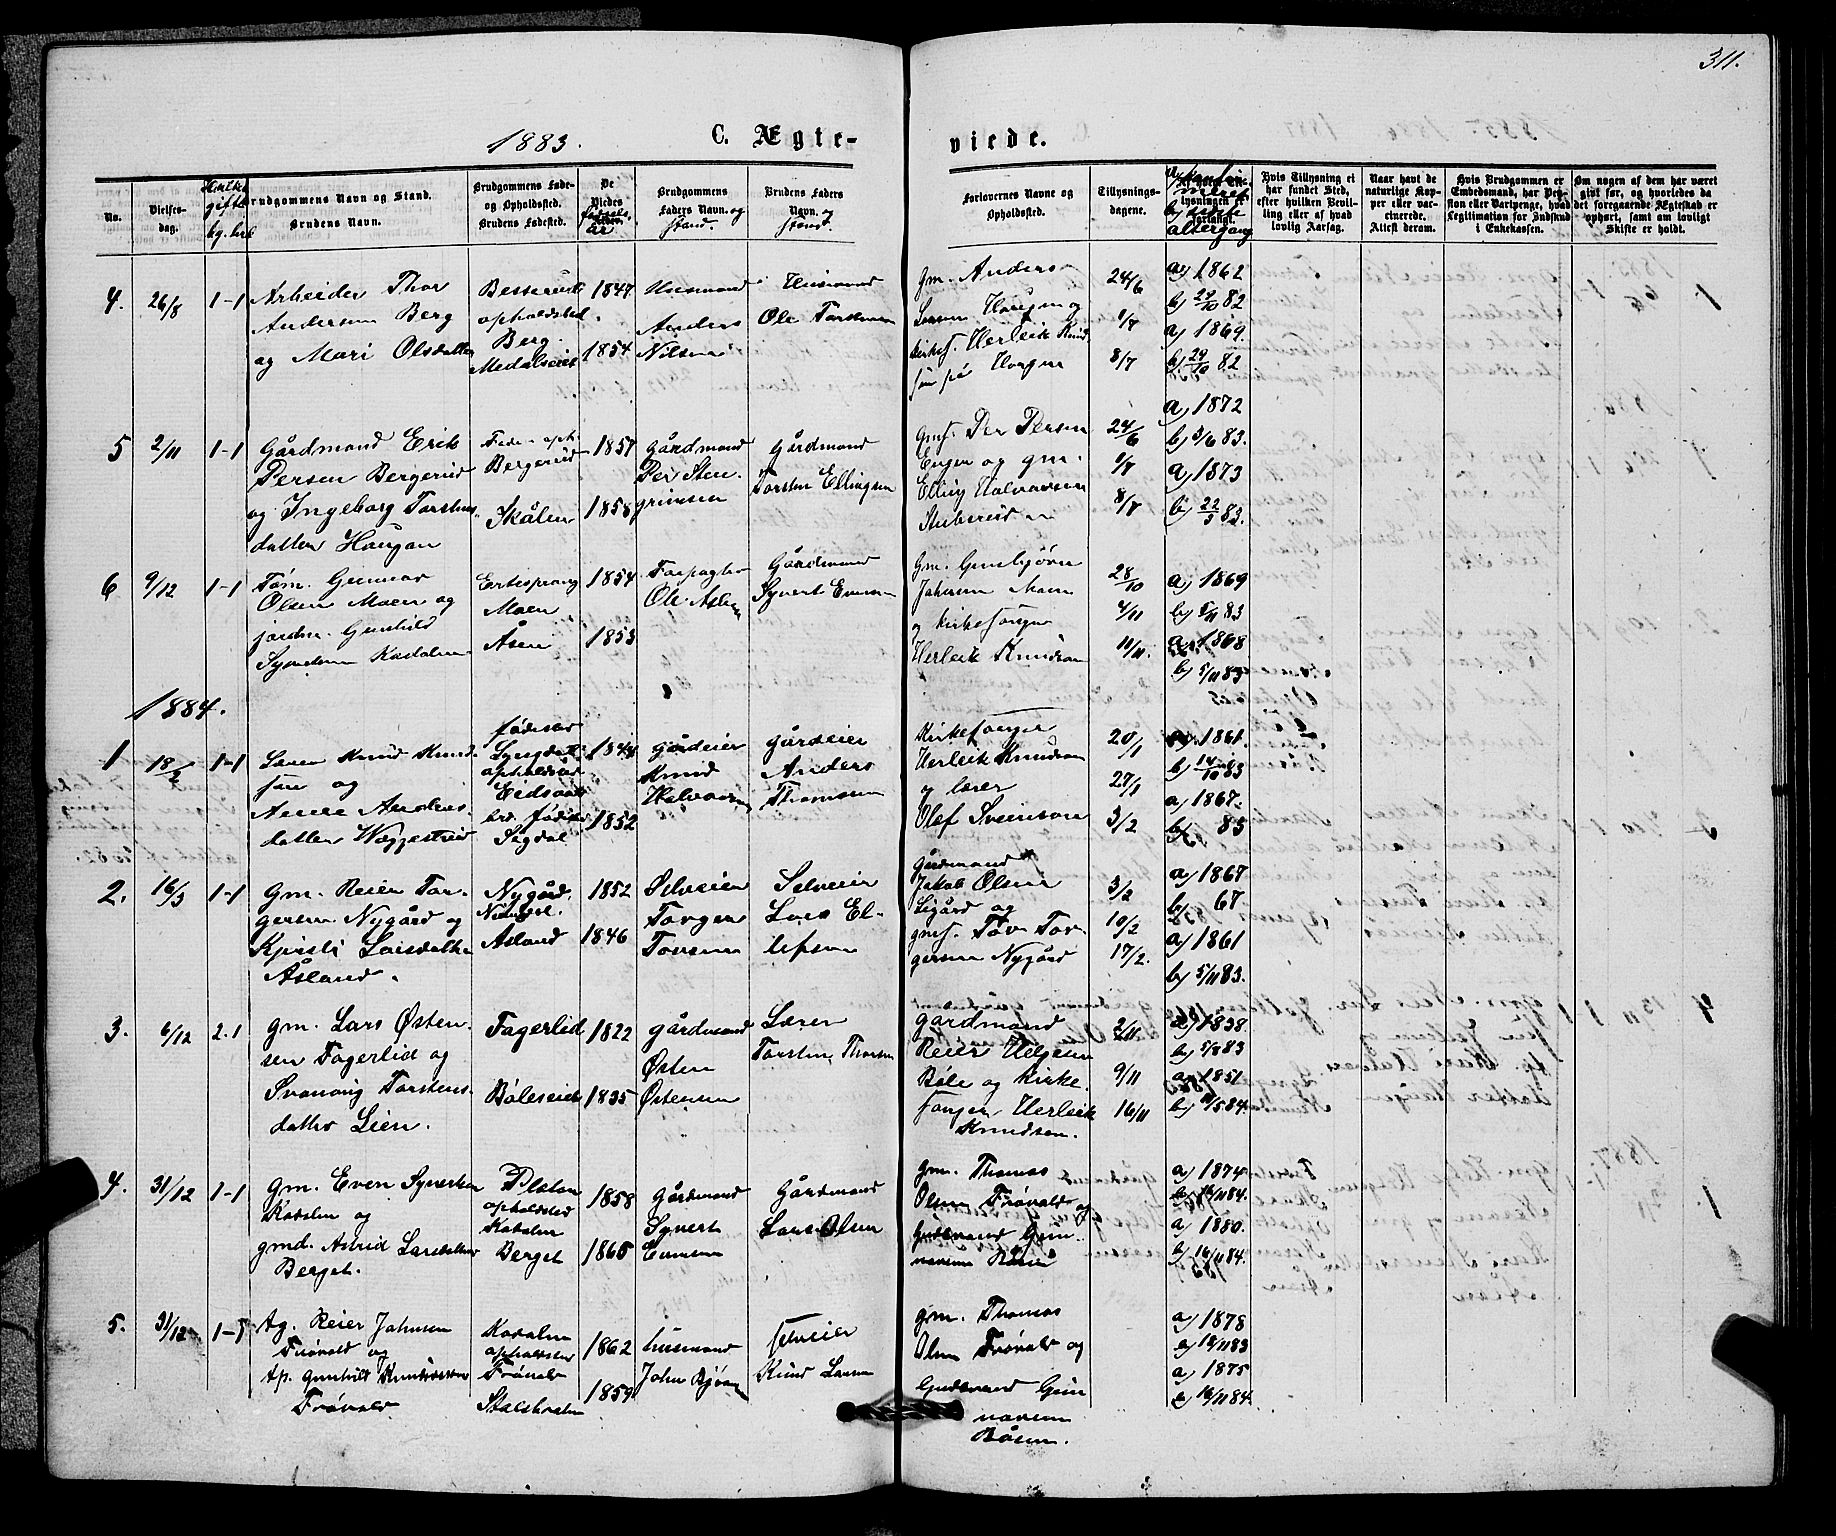 311.
1883. C. Ægte-
viede.
No.
Vielses-
dag.
Hvilket
gifte
bg. brd.
Brudgommens Navn og Stand.
Brudens Navn.
Brudgommens Føde-
og Opholdssted.
Brudens Fødested.
De
Viedes
fødsels
år
Brudgommens
Faders Navn. og
stand.
Brudens Faders
Navn. og
stand.
Forlovernes Navne og
Opholdssted.
Tillysnings-
dagene.
b) sidste
altergang
Hvis Tillysning ei
har fundet Sted,
efter hvilken Bevil-
ling eller af hvad
lovlig Aarsag.
Naar havt de
naturlige Kop-
per eller vac-
cinerede.
Attest derom.
Hvis Brudgommen er
Embedsmand, har Pen-
sion eller Vartpenge, hvad
Legitimation for Indskud
i Enkekassen.
Om nogen af dem har været
gift før, og hvorledes da
det foregaaende Ægteskab er
ophørt, samt om lovligt
Skifte er holdt.
4. 26/8 1-1
Arbeider Thor
Andersen Berg
og Mari Olsdatter
Besserud
opholdssted
Berg.
Medalseiet
1847
1854
Husmand
Anders
Nilsen
Husmand
Ole Torstensen
gm. Anders
Larsen Haugen og
kirkes. Herleik Knud
sen på Haugen
24/6
1/7
8/7
a) 1862
b) 29/10 82
a) 1869.
b) 29/10 82
5 2/11 1-1
Gårdmand Erik
Persen Bergerud
og Ingeborg Torstens
datter Haugan
Føde- oph.
Bergerud
Skålen
1857
1858
gårdmand
Per Sten-
grimsen
gårdmand
Torsten Ellingsen
gmf. Per Persen
Enger og gm.
Elling Halvorsen
Stubberud
24/6
1/7
8/7
a) 1872
b) 3/6 83.
a) 1873
b) 22/5 83.
6 9/12 1-1
Tøm. Gunnar
Olsen Moen og
jordm. Gunhild
Synedom Kadalen
Ertesprang
Moen
Åsen
1854
1853
Forpagter
Ole Aslesen
Gårdmand
Syvert Evensen
Gm. Gunbjørn
Johnsen Moen
og kirkesanger
Herleik Knudsen
28/10
4/11
11/11.
a) 1869
b) 5/11 83
a) 1868
b) 5/11 83
1884.
1 18/2 1-1
Lærer Knud Knud
sen og
Anne Anders
datter Wæggestrud
fødested
Lyngdal
opholdssted
Eidsvold
brd. fødested
Sigdal
1844
1852
gårdeier
Knud
Halvorsen
gårdeier
Anders
Thomsen
Kirkesanger
Herleik Knudsen
og lærer
Olef Sveinson
20/1
27/1
3/2
a) 1861.
b) 14/10 83
a) 1867.
b) 83
2. 16/3 1-1
Gm. Reier Tor-
gersen Nygård og
Kjersti Larsdatter
Åsland.
Nygård.
Åsland
1852
1846
Selveier
Torger
Torsen
Selveier
Lars El-
lefsen
Gårdmand
Jakob Olsen
Ligård og
gmf. Tov Tor-
gersen Nygård
3/2
10/2
17/2.
a) 1867
b) 67
a) 1861
b) 5/11 83.
3. 6/12 2-1
Gm. Lars Østen-
sen Fagerlid og
Svanaug Torstens-
datter Lien.
Fagerlid
Bøleseiet
1822
1835
gårdmand
Østen
Østensen
Lærer
Torsten Thorsen
gårdmand
Reier Helgesen
Bøle og kirke
sanger Herleik
Knudsen.
2/11
9/11
16/11
a) 1838
b) 5/8 83
a) 1851
b) 11/5 84.
4. 31/12 1-1
Gm. Even Syvertsen
Kadalen og
gmd. Astrid Larsdatter
Berget.
Pladsen
opholdssted
Kadalen
Berget
1858
1865
Gårdmand
Syvert
Evensen
Gårdmand
Lars Olsen
gm. Thomas
Olsen Frøvold og
Gudbrand Gun-
narsen Båsen
a) 1874
b) 16/11 84.
a) 1880.
b) 16/11 84.
5. 31/12 1-1
Ag. Reier Johnsen
Frøvold og
Ap. Gunhild Knudsdatter
Frøvold
Kadalen
opholdssted
Frøvold
1862
1859
husmand
John Bjørnsen
selveier
Knud Larsen
gm. Thomas
Olsen Frøvold og
Gudbrand Gun
narsen
Båsen.
a) 1878
b) 18/11 83
a) 1875
b) 16/11 84.